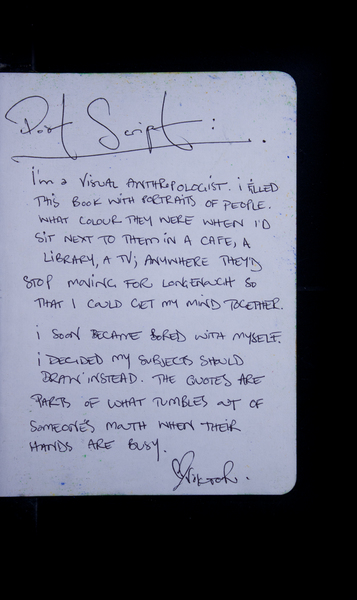 Post Script:
I'm a VISUAL ANTHROPOLOGIST. I FILLED
THIS BOOK WITH PORTRAITS OF PEOPLE.
WHAT COLOUR THEY WERE WHEN I'D
SIT NEXT TO THEM IN A CAFE, A
LIBRARY, A TV; ANYWHERE THEY'D
STOP MOVING FOR LONG ENOUGH SO
THAT I COULD GET MY MIND TOGETHER.
I SOON BECAME BORED WITH MYSELF.
I DECIDED MY SUBJECTS SHOULD
DRAW INSTEAD. THE QUOTES ARE
PARTS OF WHAT TUMBLES OUT OF
SOMEONE'S MOUTH WHEN THEIR
HANDS ARE BUSY.